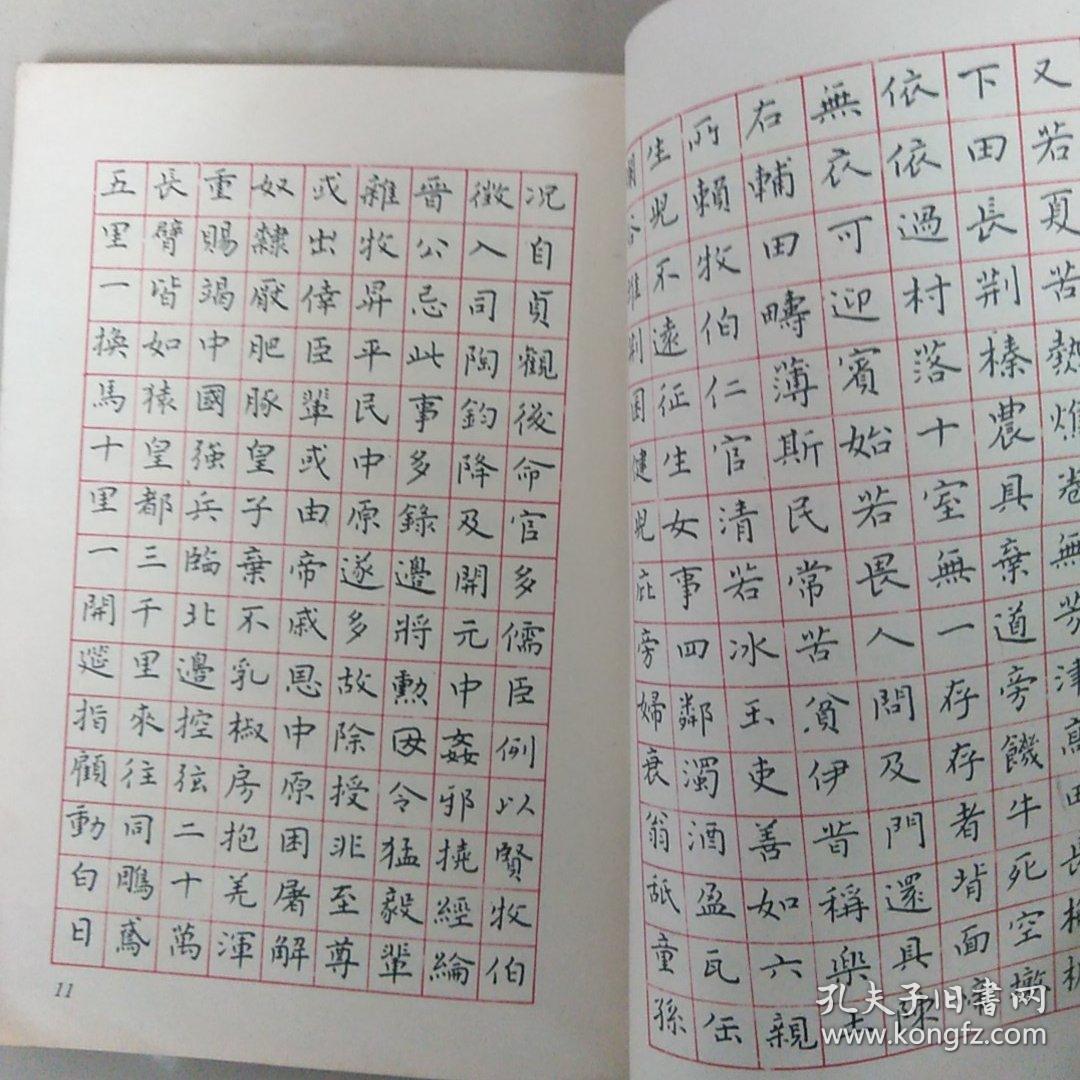 又若夏苦熱燋卷無芳津高田長
下田長荊榛農具棄道旁饑牛死空墩
依依過村落十室無一存存者背面啼
無衣可迎賓始若畏人問及門還具陳
右輔田疇薄斯民常苦貧伊昔稱樂土
所賴牧伯仁官清若冰玉吏善如六親
生兒不遠征生女事四鄰濁酒盈瓦缶
囷健兒庇旁婦衰翁舐童孫
况自貞觀後命官多儒臣例以賢牧伯
徵入司陶鈞降及開元中姦邪撓經綸
晉公忌此事多錄邊將勳因令猛毅輩
雜牧昇平民中原遂多故除授非至尊
或出倖臣輩或由帝戚恩中原困屠解
奴隸厭肥豚皇子棄不乳椒房抱羌渾
重賜竭中國強兵臨北邊控弦二十萬
長臂皆如猿皇都三千里來往同鵰鳶
五里一換馬十里一開筵指顧動白日
11
孔夫子旧书网
www.kongfz.com